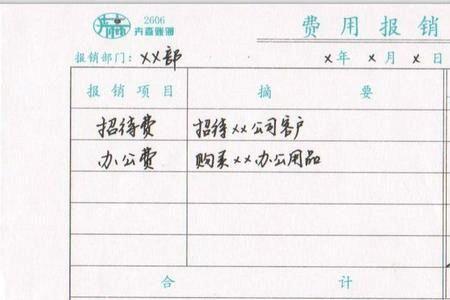 2606
卉森账簿
费用报销
报销部门：XX部 X年 X月 X日
报销项目 摘 要
招待费 招待XX公司客户
办公费 购买XX办公用品
合 计